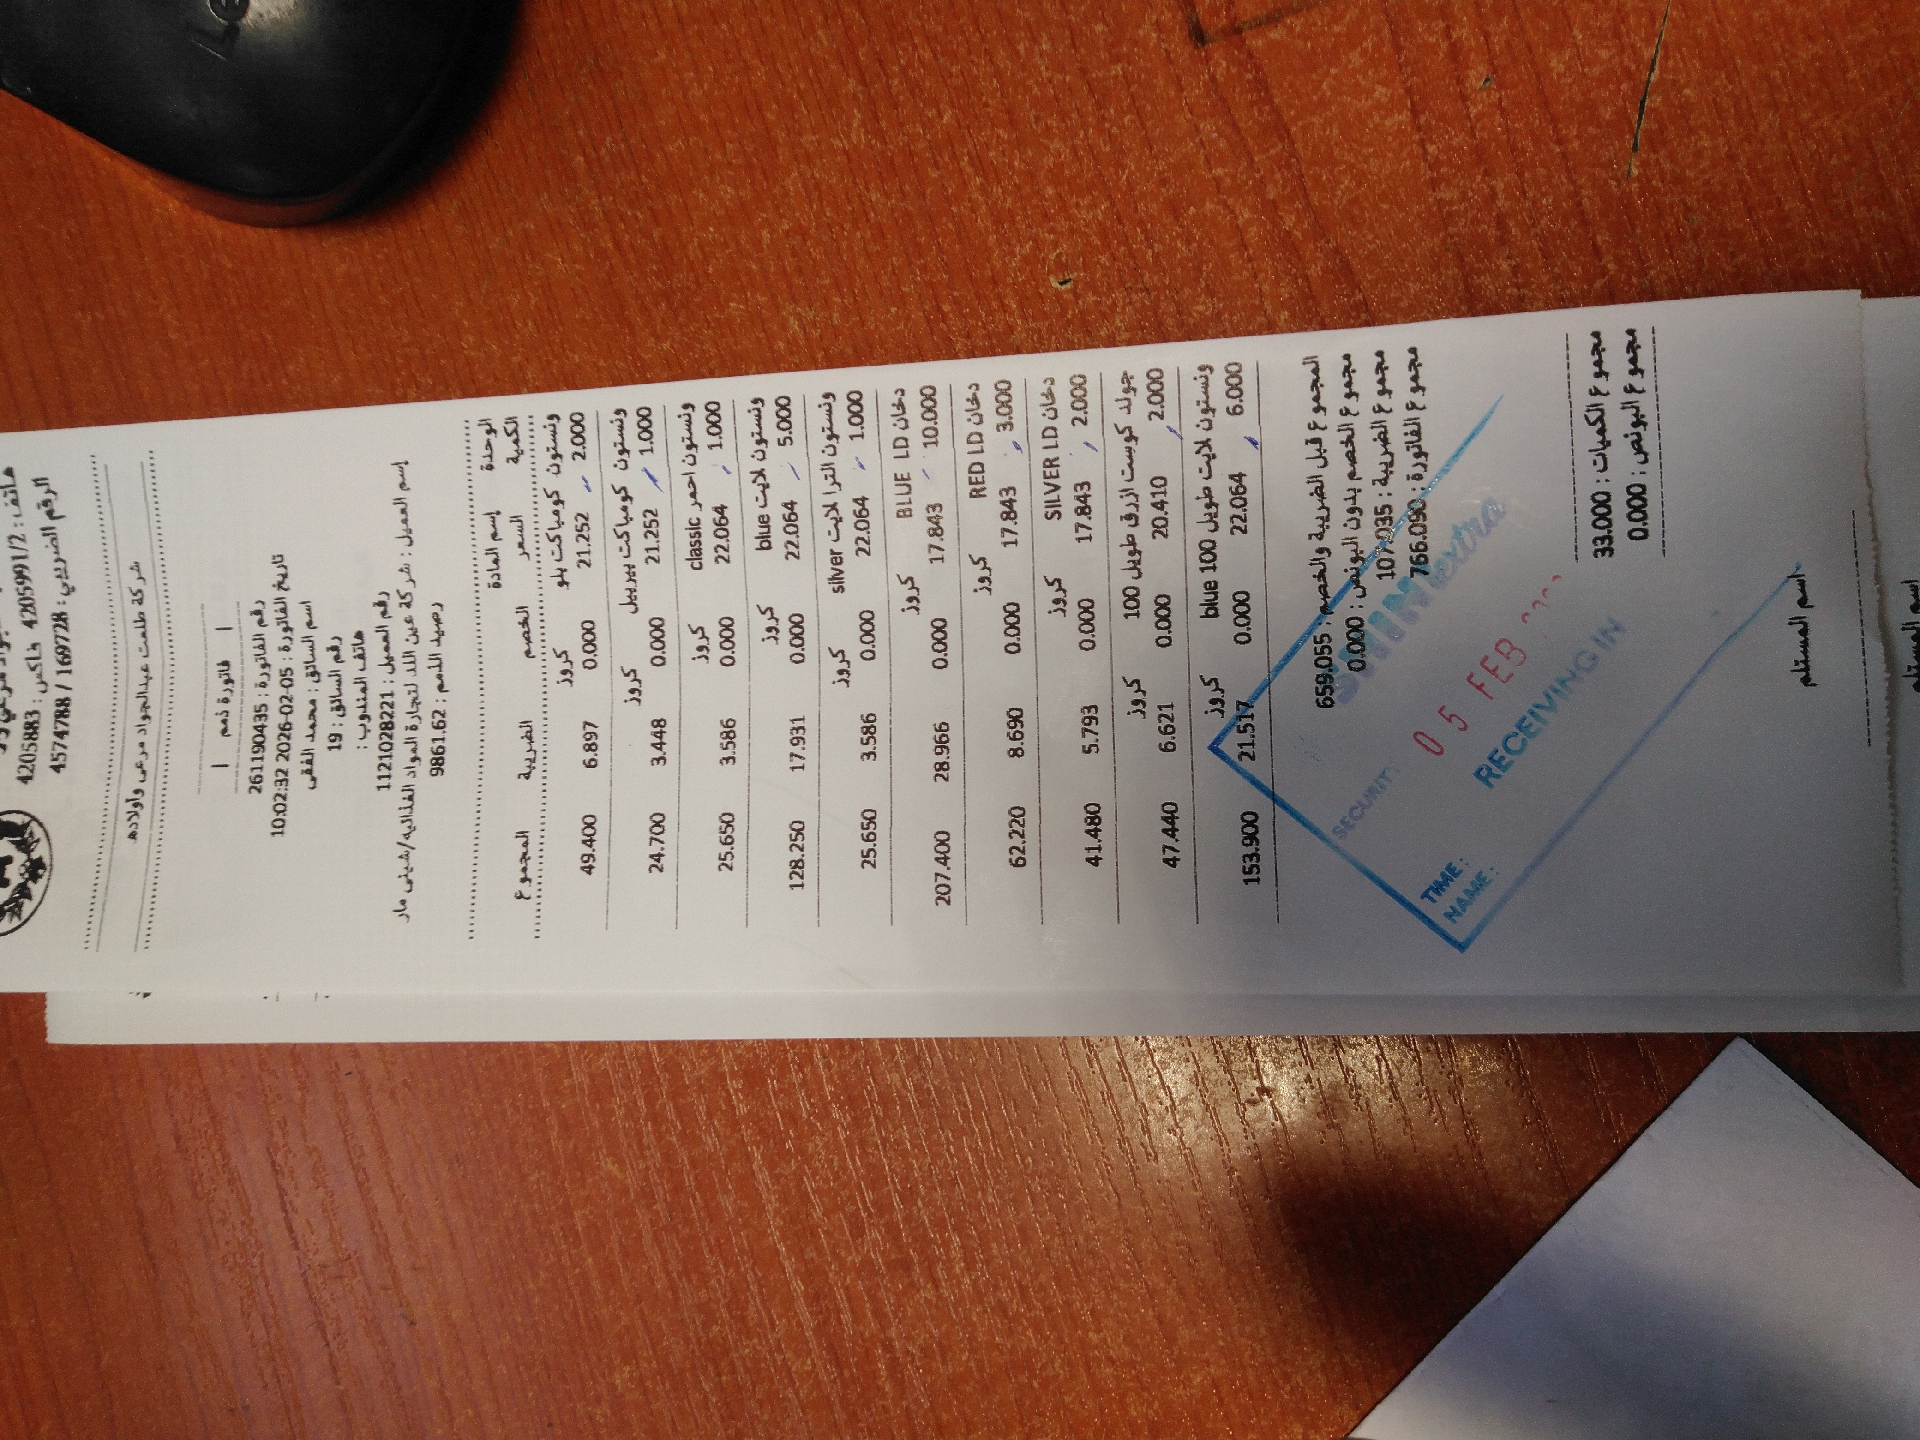 هاتف : 4205991/2 فاكس : 4205883
الرقم الضريبي : 169728 / 4574788
شركة طلعت عبدالجواد مرعي وأولاده
| فاتورة ذمم |
رقم الفاتورة : 261190435
تاريخ الفاتورة : 2026-02-05 10:02:32
اسم السائق : محمد الفقي
رقم السائق : 19
هاتف المندوب :
رقم العميل : 1121028221
إسم العميل : شركة عين اللد لتجارة المواد الغذائية/شيني مار
رصيد الذمم : 9861.62
الوحدة إسم المادة
الكمية السعر الخصم الضريبة المجموع
ونستون كومباكت بلو كروز
2.000 21.252 0.000 6.897 49.400
ونستون كومباكت بيربيل كروز
1.000 21.252 0.000 3.448 24.700
ونستون احمر classic كروز
1.000 22.064 0.000 3.586 25.650
ونستون لايت blue كروز
5.000 22.064 0.000 17.931 128.250
ونستون الترا لايت silver كروز
1.000 22.064 0.000 3.586 25.650
دخان BLUE LD كروز
10.000 17.843 0.000 28.966 207.400
دخان RED LD كروز
3.000 17.843 0.000 8.690 62.220
دخان SILVER LD كروز
2.000 17.843 0.000 5.793 41.480
جولد كوست ازرق طويل 100 كروز
2.000 20.410 0.000 6.621 47.440
ونستون لايت طويل 100 blue كروز
6.000 22.064 0.000 21.517 153.900
المجموع قبل الضريبة والخصم : 659.055
مجموع الخصم بدون البونص : 0.000
مجموع الضريبة : 107.035
مجموع الفاتورة : 766.090
extra
SECURITY
05 FEB
RECEIVING IN
TIME:
NAME:
مجموع الكميات : 33.000
مجموع البونص : 0.000
اسم المستلم
اسم المستلم